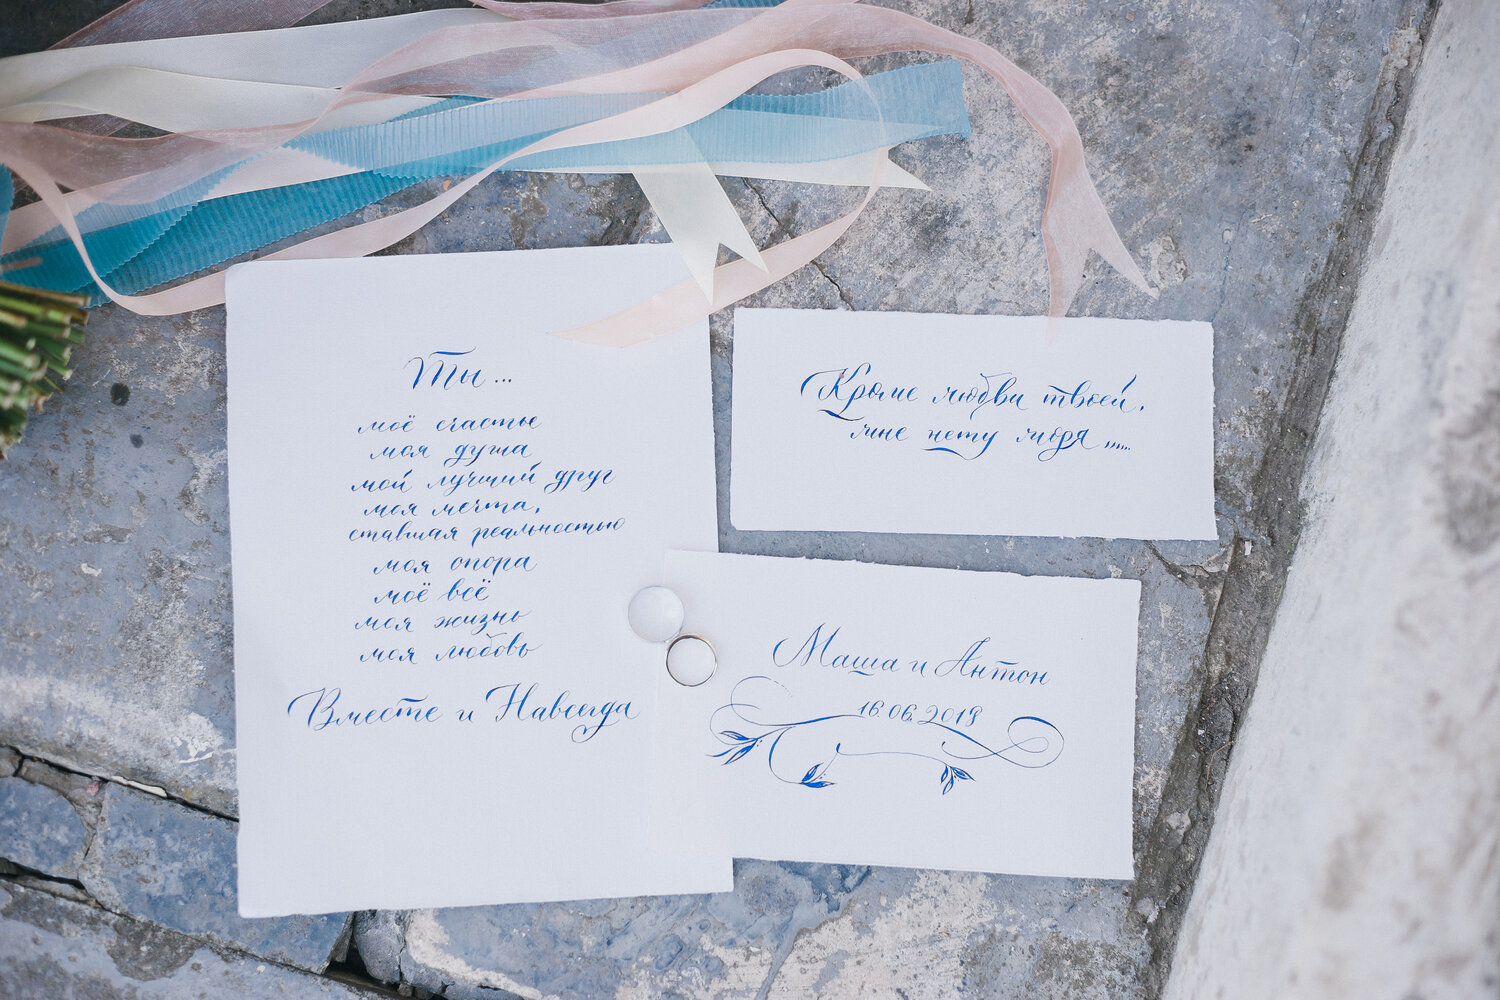 Ты...
моё счастье
моя душа
мой лучший друг
моя мечта,
ставшая реальностью
моя опора
моё всё
моя жизнь
моя любовь
Вместе и Навсегда
Кроме любви твоей,
мне нету моря.....
Маша и Антон
16.06.2018